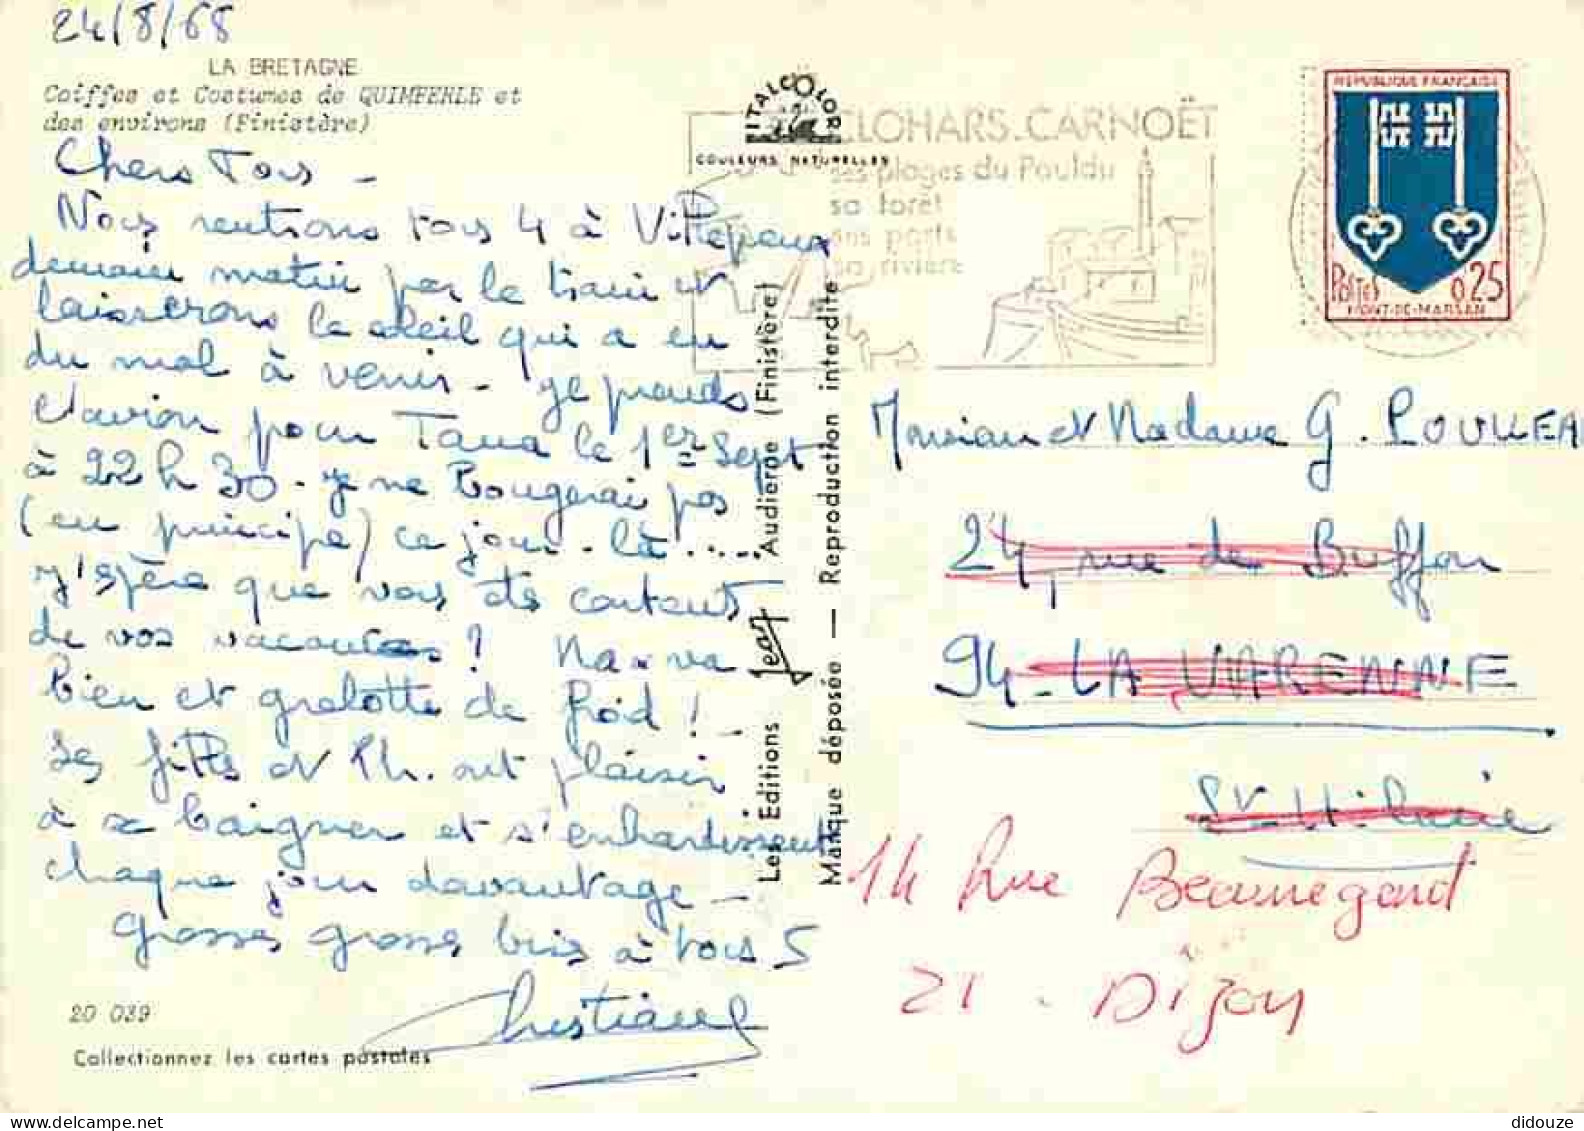 24/8/68
LA BRETAGNE
Coiffes et Costumes de QUIMPERLE et
des environs (Finistère)
Chers Tous -
Nous rentrons tous 4 à Villepreux
demain matin par le train et
laisserons le soleil qui a eu
du mal à venir - Je prends
l'avion pour Tana le 1er Sept
à 22 h 30. Je ne bougerai pas
(en principe) ce jour-là.....
J'espère que vous êtes contents
de vos vacances ? va
bien et grelotte de froid !
Les filles et Ph. ont plaisir
à se baigner et s'enhardissent
chaque jour davantage -
Grosses grosses bises à tous 5
Christiane
20 039
Collectionnez les cartes postales
ITALCOLOR
COULEURS NATURELLES
Les Editions Jean Audierne (Finistère)
Marque déposée — Reproduction interdite
CLOHARS-CARNOËT
ses plages du Pouldu
sa forêt
ses ports
sa rivière
REPUBLIQUE FRANÇAISE
POSTES 0,25
MONT-DE-MARSAN
Monsieur et Madame G. POULLEA
24, rue de Buffon
94 - LA VARENNE
St Hilaire
14 Rue Beauregard
21 - Dijon
didouze